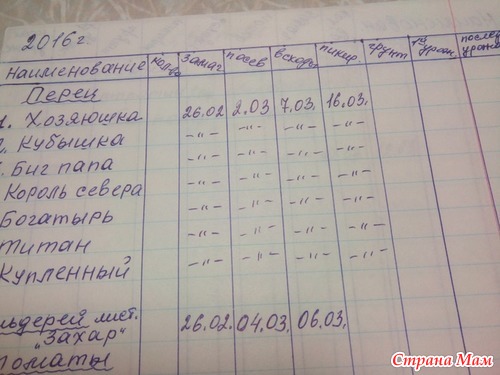 2016 г.
наименование кол-во замач посев всходы пикир. грунт 1й урож. послед урожа
Перец
1. Хозяюшка 26.02 2.03 7.03. 16.03.
2. Кубышка -"- -"- -"- -"-
Биг папа -"- -"- -"- -"-
Король севера -"- -"- -"- -"-
Богатырь -"- -"- -"- -"-
Титан -"- -"- -"- -"-
Купленный -"- -"- -"- -"-
льдерей лист. 26.02. 04.03. 06.03.
"Захар"
томаты
Страна Мам